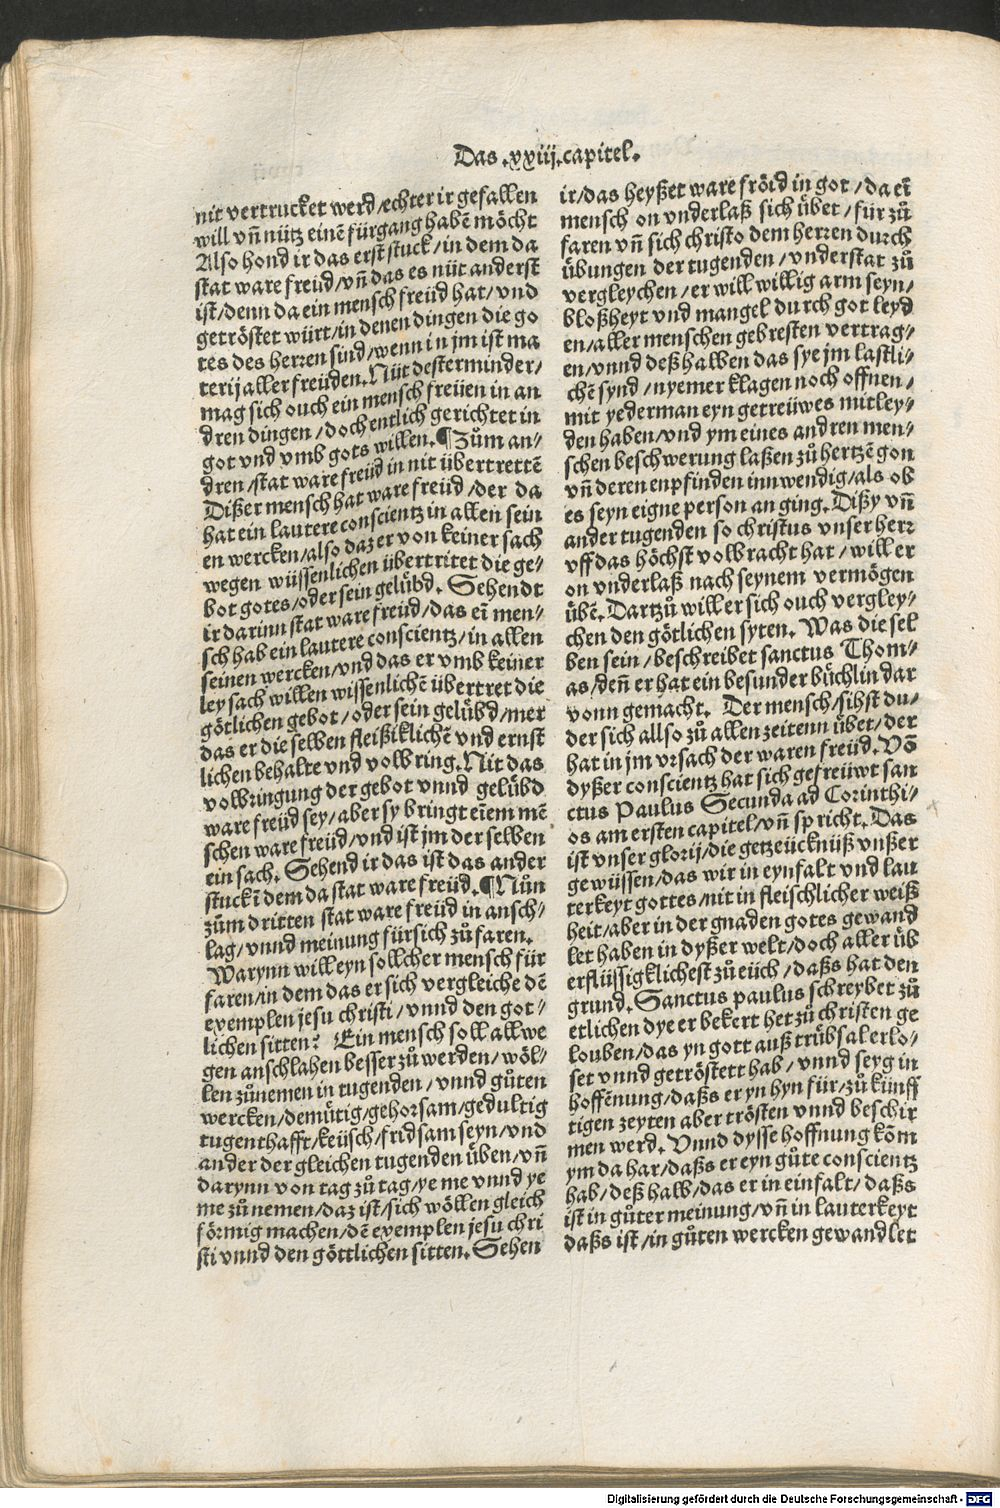 Das .xxiij. capitel.
nit vertrucket werd/echter ir gefallen
will vñ nütz einē fürgang habē möcht
Also hond ir das erst stuck/in dem da
stat ware freüd/vñ das es nüt anderst
ist/denn da ein mensch freüd hat/vnd
getröstet würt/in denen dingen die go
tes des herren sind/wenn in jm ist ma
terij aller freüden. Nüt desterminder/
mag sich ouch ein mensch freüen in an
dren dingen/doch entlich gerichtet in
got vnd vmb gots willen. ¶ Zům an-
dren/stat ware freüd in nit übertrettē
Dißer mensch hat ware freüd/der da
hat ein lautere conscientz in allen sein
en wercken/also daz er von keiner sach
wegen wüssenlichen übertritet die ge-
bot gotes/oder sein gelübd. Sehendt
ir darinn stat ware freüd/das eī men-
sch hab ein lautere conscientz/in allen
seinen wercken/vnd das er vmb keiner
ley sach willen wissenlichē übertret die
götlichen gebot/oder sein gelübd/mer
das er die selben fleißiklichē vnd ernst
lichen behalte vnd volbring. Nit das
volbringung der gebot vnnd gelübd
ware freüd sey/aber sy bringt eīem mē
schen ware freüd/vnd ist jm der selben
ein sach. Sehend ir das ist das ander
stuck ī dem da stat ware freüd. ¶ Nůn
zům dritten stat ware freüd in ansch-
lag/vnnd meinung fürsich zů faren.
Warynn will eyn sollcher mensch für
faren/in dem das er sich vergleiche dē
exemplen jesu christi/vnnd den got-
lichen sitten? Ein mensch soll allwe
gen anschlahen besser zů werden/wöl-
len zůnemen in tugenden/vnnd gůten
wercken/demütig/gehorsam/gedultig
tugenthafft/keüsch/fridsam seyn/vnd
ander der gleichen tugenden üben/vñ
darynn von tag zů tag/ye me vnnd ye
me zů nemen/daz ist/sich wöllen gleich
förmig machen/dē exemplen jesu chri
sti vnnd den göttlichen sitten. Sehen
ir/das heyßet ware fröid in got/da eī
mensch on vnderlaß sich übet/für zů
faren vñ sich christo dem herren durch
übungen der tugenden/vnderstat zů
vergleychen/er will willig arm seyn/
bloßheyt vnd mangel durch got leyd
en/aller menschen gebresten vertrag-
en/vnnd deßhalben das sye jm lastli-
chē synd/nyemer klagen noch offnen/
mit yederman eyn getreüwes mitley-
den haben/vnd ym eines andren men-
schen beschwerung laßen zů hertzē gon
vñ deren enpfinden innwendig/als ob
es seyn eigne person an ging. Dißy vñ
ander tugenden so christus vnser herr
vff das höchst volbracht hat/will er
on vnderlaß nach seynem vermögen
übē. Dartzů will er sich ouch vergley-
chen den götlichen syten. Was die sel
ben sein/beschreibet sanctus Thom-
as/deñ er hat ein besunder büchlin dar
vonn gemacht. Der mensch/sihst du/
der sich allso zů allen zeitenn übet/der
hat in jm vrsach der waren freüd. Vō
dyßer conscientz hat sich gefreüwt san
ctus Paulus Secunda ad Corinthi-
os am ersten capitel/vñ spricht. Das
ist vnser glorij/die getzeücknüß vnßer
gewüssen/das wir in eynfalt vnd lau
terkeyt gottes/nit in fleischlicher weiß
heit/aber in der gnaden gotes gewand
let haben in dyßer welt/doch aller üb
erflüssigklichest zů eüch/daßs hat den
grund. Sanctus paulus schreybet zů
etlichen dye er bekert het zů christen ge
louben/das yn gott auß trübsal erlo-
set vnnd getröstett hab/vnnd seyg in
hoffēnung/daßs er yn hyn für/zů künff
tigen zeyten aber trösten vnnd beschir
men werd. Vnnd dysse hoffnung kōm
ym da har/daßs er eyn gůte conscientz
hab/deßhalb/das er in einfalt/daßs
ist in gůter meinung/vñ in lauterkeyt
daßs ist/in gůten wercken gewandlet
Digitalisierung gefördert durch die Deutsche Forschungsgemeinschaft - DFG